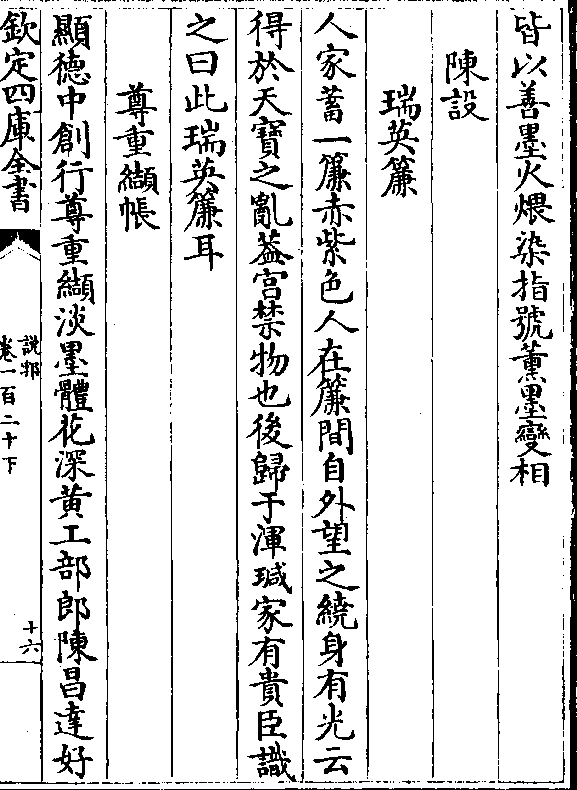 皆以善墨火煨染指號薫墨變相
陳設
瑞英簾
人家蓄一簾赤紫色人在簾間自外望之繞身有光云
得於天寶之亂葢宫禁物也後歸于渾瑊家有貴臣識
之曰此瑞英簾耳
尊重纈帳
顯徳中創行尊重纈淡墨體花深黄工部郎陳昌達好
欽定四庫全書
說郛
卷一百二十下
十六